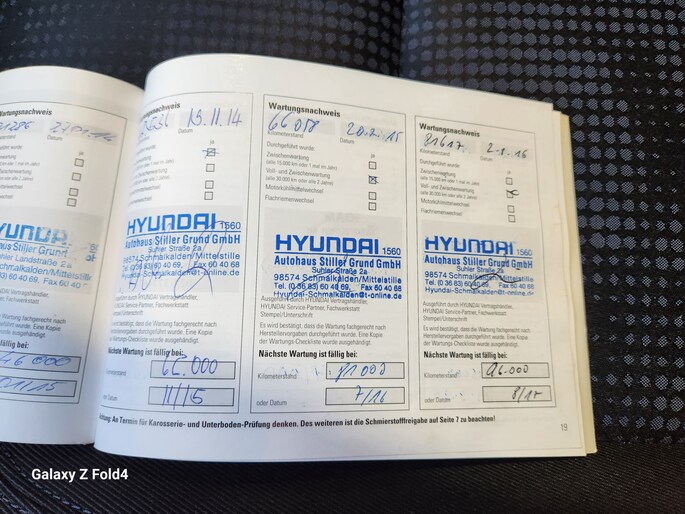 Wartungsnachweis
Datum
ja
HYUNDAI
Autohaus Stiller Grund
46 000
01/15
Wartungsnachweis
13.11.14
Datum
ja
HYUNDAI 1560
Autohaus Stiller Grund GmbH
Suhler Straße 2a
98574 Schmalkalden/Mittelstille
Tel. (0 36 83) 60 40 69, Fax 60 40 68
Hyundai-Schmalkalden@t-online.de
Ausgeführt durch HYUNDAI Vertragshändler,
HYUNDAI Service-Partner, Fachwerkstatt
Stempel/Unterschrift
Es wird bestätigt, dass die Wartung fachgerecht nach
Herstellervorgaben durchgeführt wurde. Eine Kopie
der Wartungs-Checkliste wurde ausgehändigt.
Nächste Wartung ist fällig bei:
Kilometerstand
oder Datum
11/15
Wartungsnachweis
66 058
Kilometerstand
Datum
Durchgeführt wurde:
ja
Zwischenwartung
(alle 15.000 km oder 1 mal im Jahr)
Voll- und Zwischenwartung
(alle 30.000 km oder alle 2 Jahre)
Motorkühlmittelwechsel
Flachriemenwechsel
HYUNDAI 1560
Autohaus Stiller Grund GmbH
Suhler Straße 2a
98574 Schmalkalden/Mittelstille
Tel. (0 36 83) 60 40 69, Fax 60 40 68
Hyundai-Schmalkalden@t-online.de
Ausgeführt durch HYUNDAI Vertragshändler,
HYUNDAI Service-Partner, Fachwerkstatt
Stempel/Unterschrift
Es wird bestätigt, dass die Wartung fachgerecht nach
Herstellervorgaben durchgeführt wurde. Eine Kopie
der Wartungs-Checkliste wurde ausgehändigt.
Nächste Wartung ist fällig bei:
Kilometerstand 81000
oder Datum 7/16
Wartungsnachweis
81617 2.8.16
Kilometerstand Datum
Durchgeführt wurde: ja
Zwischenwartung
(alle 15.000 km oder 1 mal im Jahr)
Voll- und Zwischenwartung
(alle 30.000 km oder alle 2 Jahre)
Motorkühlmittelwechsel
Flachriemenwechsel
HYUNDAI 1560
Autohaus Stiller Grund GmbH
Suhler Straße 2a
98574 Schmalkalden/Mittelstille
Tel. (0 36 83) 60 40 69, Fax 60 40 68
Hyundai-Schmalkalden@t-online.de
Ausgeführt durch HYUNDAI Vertragshändler,
HYUNDAI Service-Partner, Fachwerkstatt
Stempel/Unterschrift
Es wird bestätigt, dass die Wartung fachgerecht nach
Herstellervorgaben durchgeführt wurde. Eine Kopie
der Wartungs-Checkliste wurde ausgehändigt.
Nächste Wartung ist fällig bei:
Kilometerstand 96.000
oder Datum 8/17
Achtung: An Termin für Karosserie- und Unterboden-Prüfung denken. Des weiteren ist die Schmierstofffreigabe auf Seite 7 zu beachten!
19
Galaxy Z Fold4